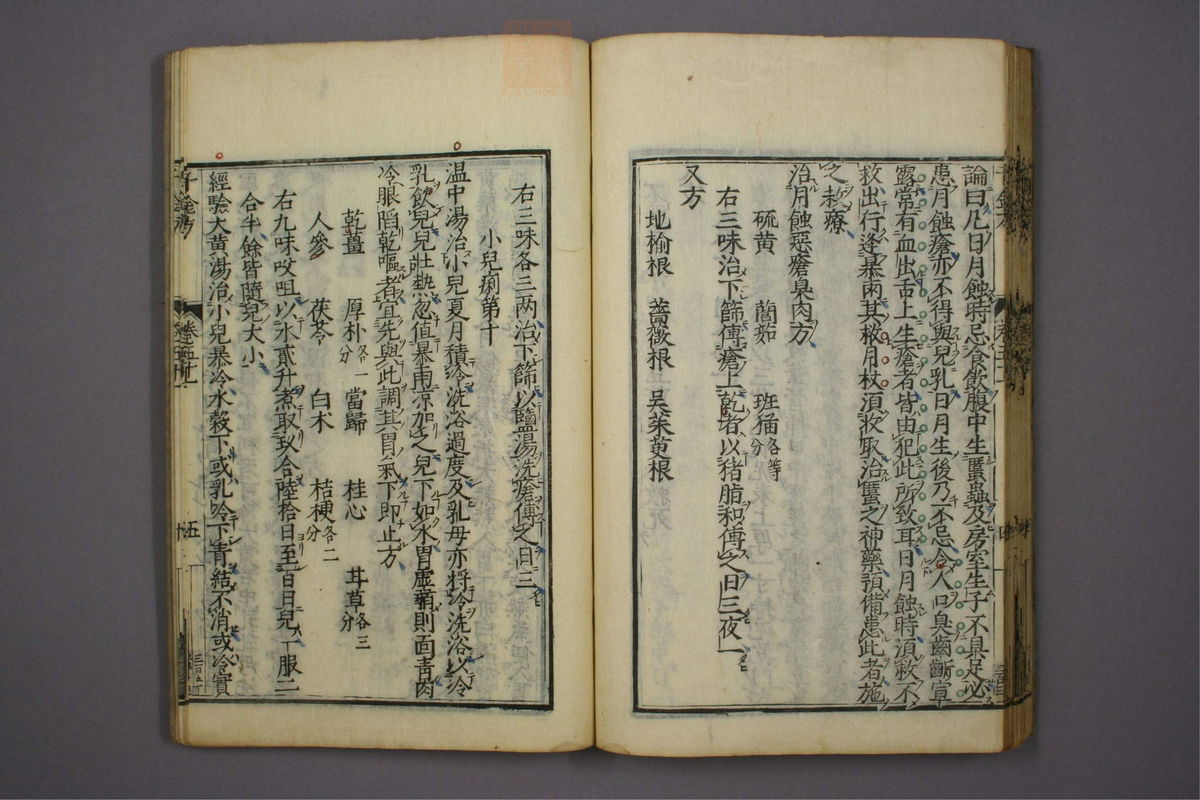 論曰凡日月蝕時忌食飲腹中生䘌蟲及房室生子不具足必
患月蝕瘡亦不得與兒乳日月生後乃不忌令人口臭齒齗宣
露常有血出舌上生瘡者皆由犯此所致耳日月蝕時須救不
救出行逢暴雨其救月杖須收取治䘌之神藥預備患此者施
之救療
治月蝕惡瘡臭肉方
硫黄 䕡茹 班猫各等分
右三味治下篩傅瘡上乾者以猪脂和傅之日三夜一
又方
地榆根 薔薇根 吳茱萸根
右三味各三两治下篩以鹽湯洗瘡傅之日三
小兒痢第十
温中湯治小兒夏月積冷洗浴過度及乳母亦将冷洗浴以冷
乳飲兒兒壯熱忽值暴雨凉加之兒下如水胃虛弱則面青肉
冷眼陷乾嘔者宜先與此調其胃氣下即止方
乾薑 厚朴各一分 當歸 桂心 甘草各三分
人參 茯苓 白木 桔梗各二分
右九味㕮咀以水貳升煮取玖合陸拾日至百日兒一服二
合半餘皆隨兒大小
經驗大黄湯治小兒暴冷水穀下或乳冷下青結不消或冷實